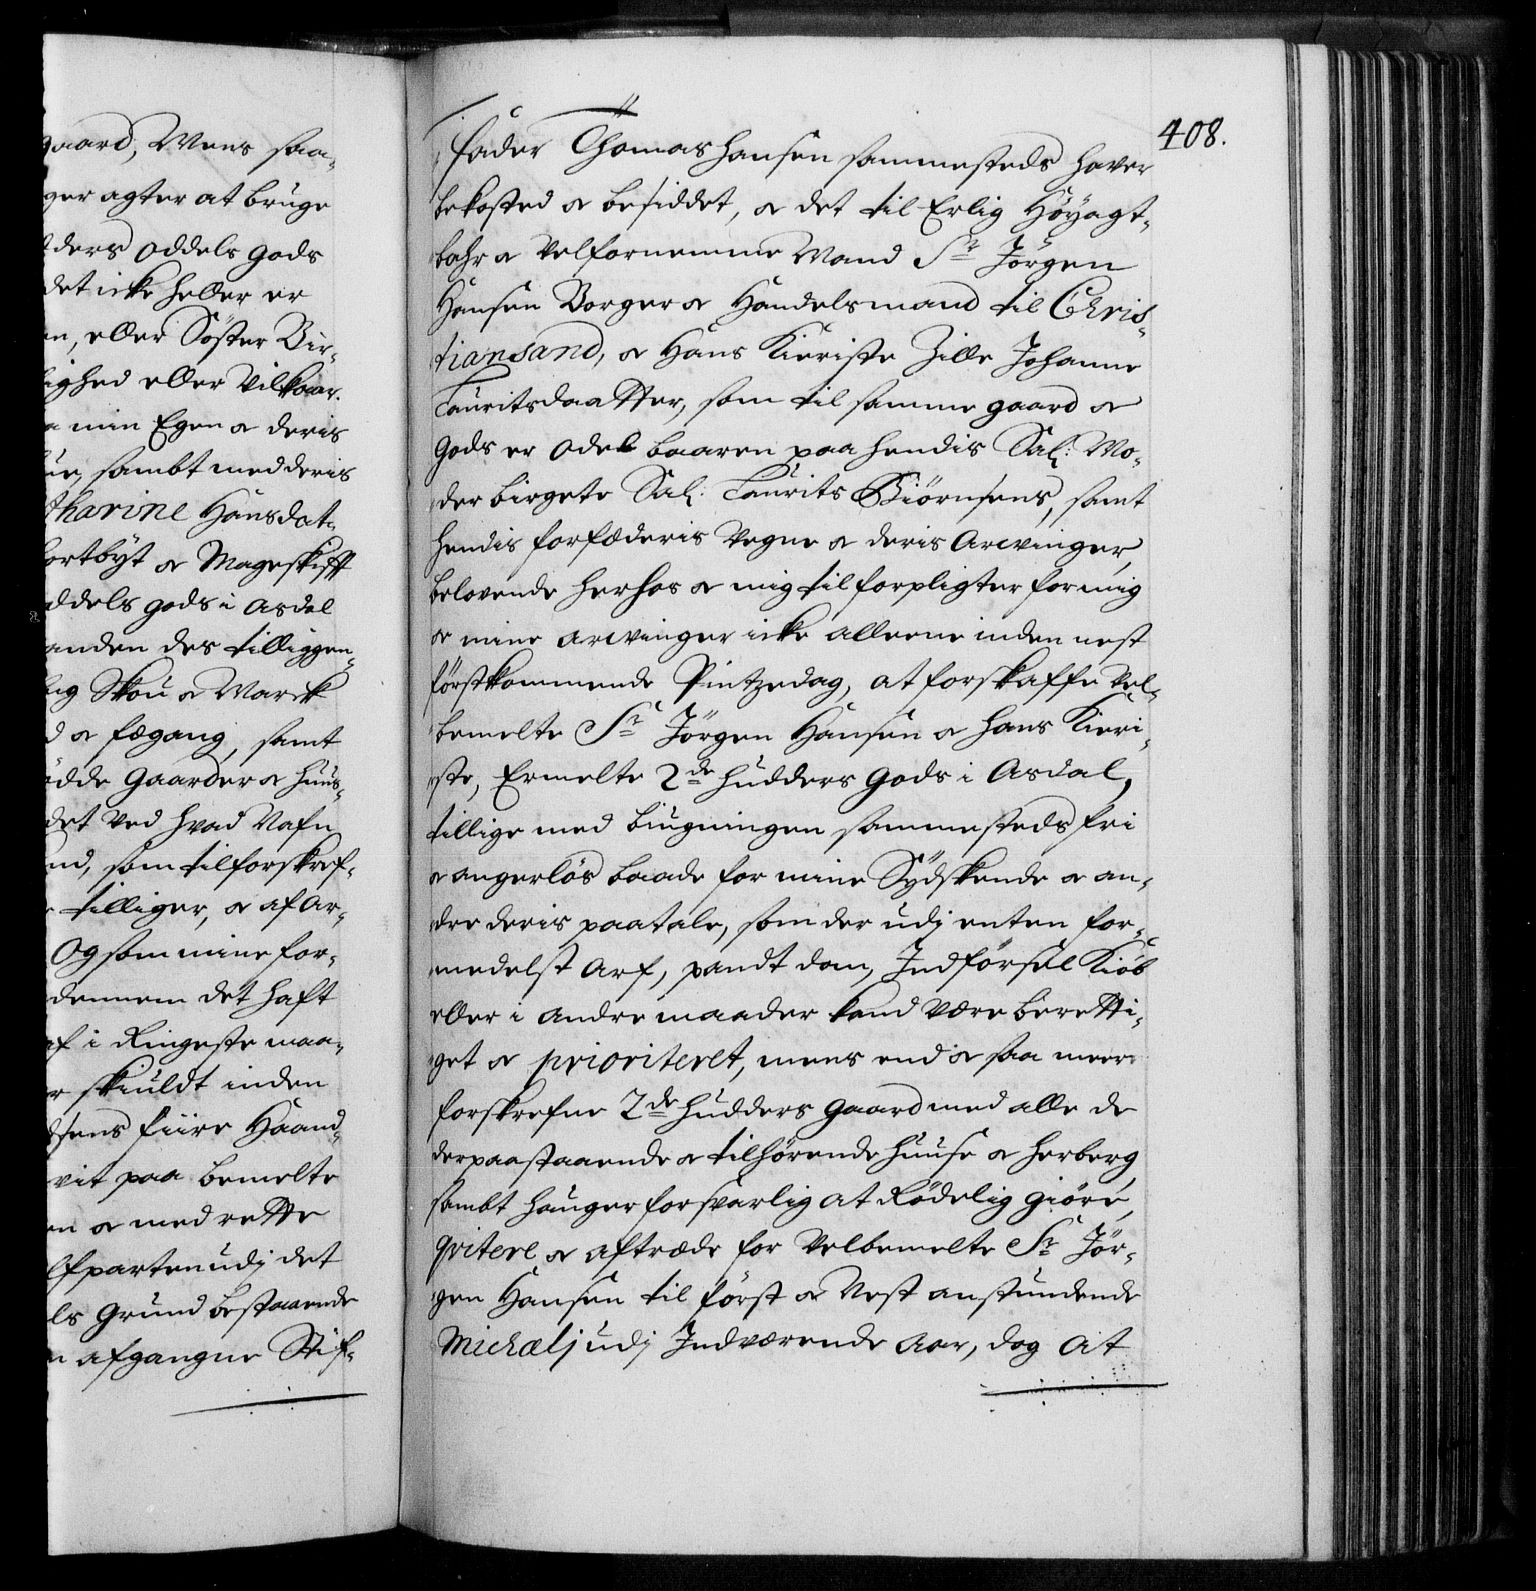 gaard, Mens saa-
ger agter at bruge
ders oddels gods
det icke heller er
n, eller Söster Bir-
lighed eller Vilkaar.
a min Egen & deris
ue, sambt med deris
tharine Hansdat-
bortbÿt & Mageskifft
oddels gods i Asdal
anden des tilliggen-
lig Skou & Marck
d & fægang, samt
ödde Gaarder & Huus-
det Ved hvad Nafn
nd, som til forskref-
tilliger, & af Ar-
Og som mine for-
dennem det haft
af i Ringeste maa-
r skiuldt inden
sens fiire Haand-
vit paa bemelte
en & med rette
lfparten udj det
ls Grund bestaaende
n afgangne Stif-
408.
fader Thomas Hansen sammesteds haver
bekosted & besiddet, & det til Erlig Höyagt-
bahr & Velfornemme Mand Sr Jörgen
Hansen Borger & Handelsmand til Chris-
tiansand, & Hans Kieriste Zille Johanne
Lauritsdaatter, som til samme gaard &
Gods er Odel baaren paa hendis Sal: Mo-
der birgete Sal: Laurits Biörnsens, samt
hendis forfæderis Vegne & deris Arvinger,
belovende herhos & mig tilforpligter for mig
& mine arvinger icke alleene inden nest
förstkommende Pintzedag, at forskaffe Vel-
bemelte Sr Jörgen Hansen & hans Kieri-
ste, Ermelte 2de hudders Gods i Asdal,
tillige med biugningen sammesteds fri
& angerlös baade for mine Sÿdskende & an-
dre deris paatale, som der udj enten for-
medelst Arf, pandt dom, Indförsel Kiöb
eller i andre maader kand Være beretti-
get & prioriteret, mens end & saa meere
forskrefne 2de hudders Gaard med alle de
derpaastaaende & tilhörende huuse & herberg
sambt hauger forsvarlig at Rödelig giöre,
qvitere & aftræde for Velbemelte Sr Jör-
gen Hansen til först & Nest anstundende
Michælj udj Indværende Aar, dog at